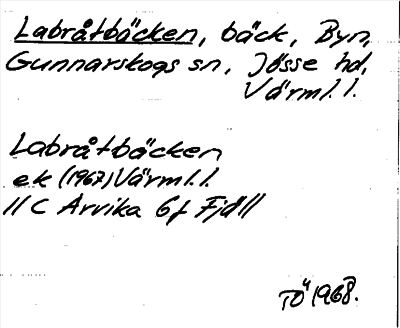 Labråtbäcken, bäck, Byn,
Gunnarskogs sn, Jösse hd,
Värml. l.
Labråtbäcken
ek (1967) Värml. l.
11 C Arvika 6f Fjäll
TÖ 1968.